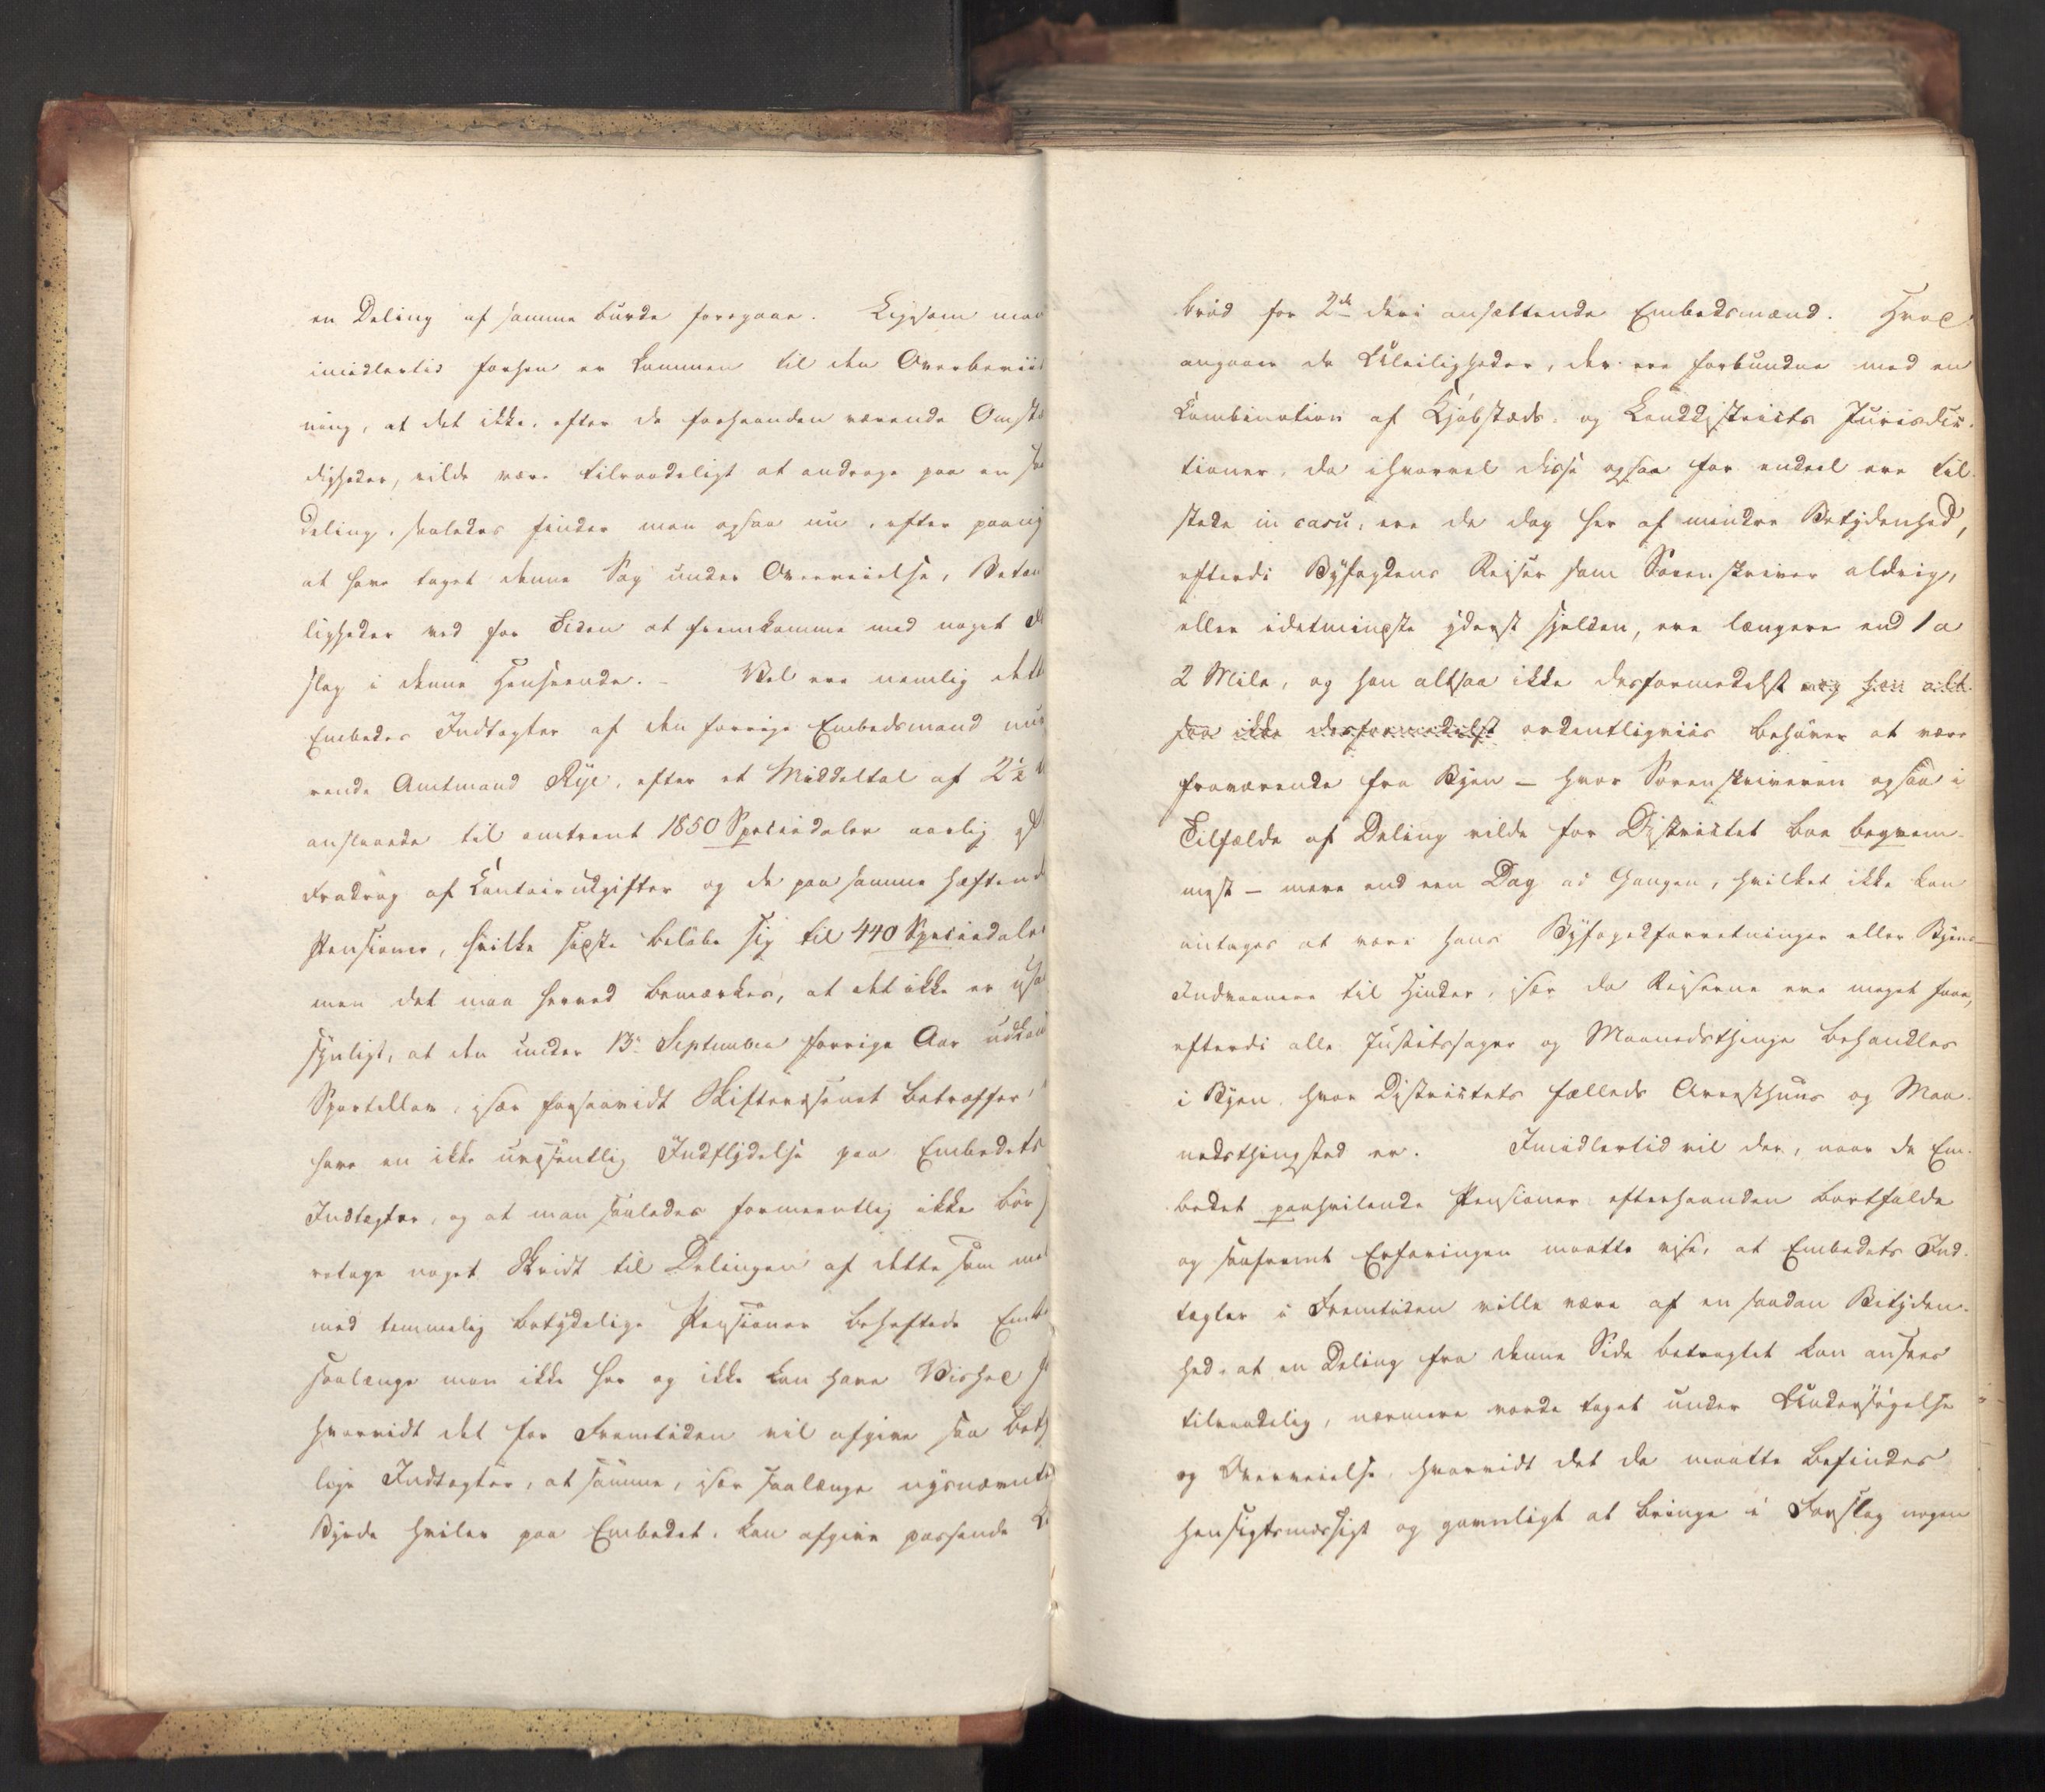 en Deling af samme burde foregaae. Ligesom man
imidlertid forhen er kommen til den Overbeviis
ning, at det ikke, efter de forhaanden værende Omstæ
digheder, vilde være tilraadeligt at andrage paa en saa
Deling, saaledes finder man ogsaa nu, efter paany
at have taget denne Sag under Overveielse, Betæn
ligheder ved for Tiden at fremkomme med noget
slag i denne Henseende. – Vel ere nemlig dette
Embedes Indtægter af den forrige Embedsmand nu
rende Amtmand Rye, efter et Middeltal af 2½
anslaaede til omtrent 1850 Speciedaler aarlig
Fradrag af Contoirudgifter og de paa samme hæftende
Pensioner, hvilke sidste beløbe sig til 440 Speciedaler
men det maa herved bemærkes, at det ikke er usa
synligt, at den under 13de September forrige Aar udkom
Sportellov, især forsaavidt Skiftevæsenet betræffer,
have en ikke uvæsentlig Indflydelse paa Embedets
Indtægter, og at man saaledes formeentlig ikke bør
retage noget Skridt til Delingen af dette som
med temmelig betydelige Pensioner behæftede Emb
saalænge man ikke har og ikke kan have Vished
hvorvidt det for Fremtiden vil afgive saa bety
lige Indtægter, at samme, især saalænge nysnævnte
Byrde hviler paa Embedet, kan afgive passende
brød for 2de deri ansættende Embedsmænd. Hvad
angaaer de Uleiligheder, der ere forbundne med en
Combination af Kjøbstæds- og Landdistricts Jurisdic-
tioner, da ihvorvel disse ogsaa for endeel ere til-
stede in casu, ere de dog her af mindre Betydenhed,
efterdi Byfogdens Reiser som Sorenskriver aldrig,
eller idetmindste yderst sjelden, ere længere end 1 a
2 Mile, og han altsaa ikke desformedelst og han alt-
saa ikke desformedelst ordentligviis behøver at være
fraværende fra Byen – hvor Sorenskriveren ogsaa i
Tilfælde af Deling vilde for Districtet boe beqvem-
mest – mere end een Dag ad Gangen, hvilket ikke kan
antages at være hans Byfogedforretninger eller Byens
Indvaanere til Hinder, især da Reiserne ere meget faae,
efterdi alle Justitssager og Maanedsthinge behandles
i Byen, hvor Districtets fælleds Arresthuus og Maa-
nedsthingsted er. Imidlertid vil der, naar de Em-
bedet paahvilende Pensioner efterhaanden bortfalde
og saafremt Erfaringen maatte vise, at Embedets Ind-
tægter i Fremtiden ville være af en saadan Betyden-
hed, at en Deling fra denne Side betragtet kan ansees
tilraadelig, nærmere vorde taget under Undersøgelse
og Overveielse, hvorvidt det da maatte befindes
hensigtsmæssigt og gavnligt at bringe i Forslag nogen